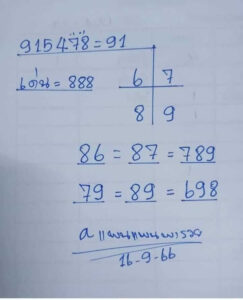 915478 = 91
เด่น = 888
6 7
8 9
86 = 87 = 789
79 = 89 = 698
16-9-66